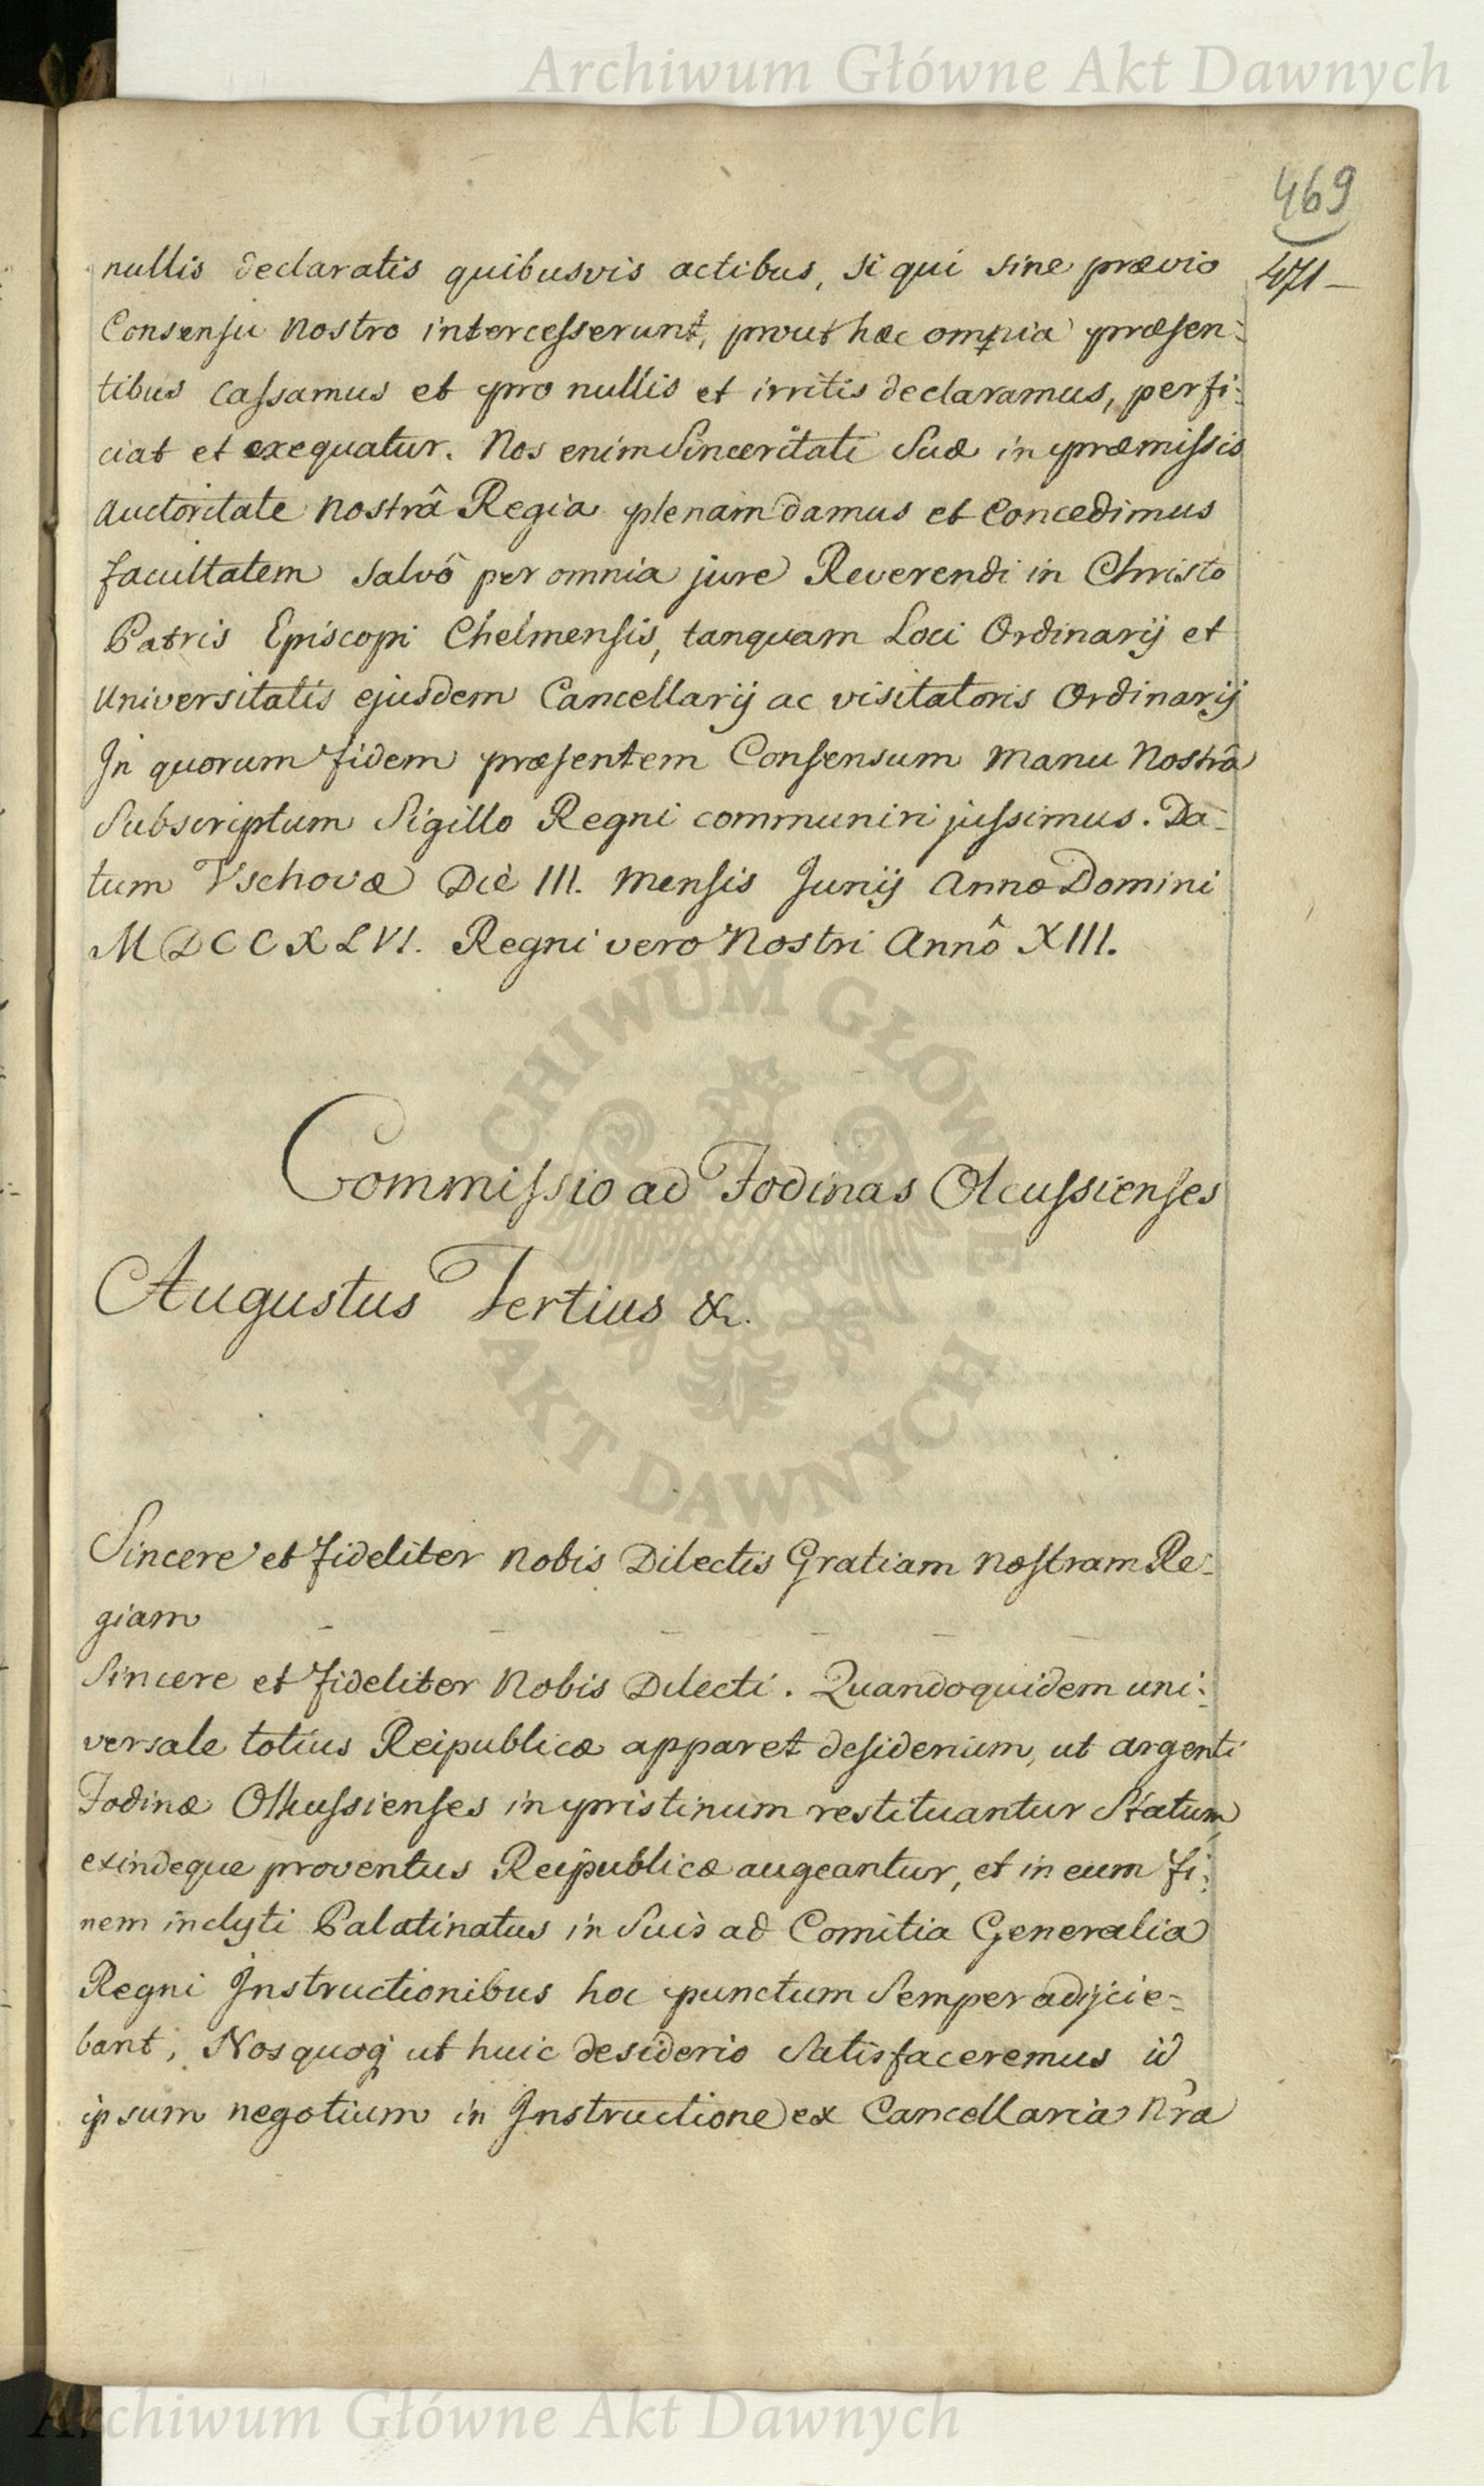 Archiwum Główne Akt Dawnych
469
471
nullis declaratis quibusvis actibus, si qui sine prævio
Consensu Nostro intercesserunt, prout hæc omnia præsen:
tibus cassamus et pro nullis et irritis declaramus, perfi:
ciat et exequatur. Nos enim Sinceritati Suæ in præmissis
Auctoritate Nostrâ Regia plenam damus et Concedimus
facultatem salvô per omnia jure Reverendi in Christo
Patris Episcopi Chelmensis, tanquam Loci Ordinarij et
Universitatis ejusdem Cancellarij ac visitatoris Ordinarij
In quorum fidem præsentem Consensum Manu Nostrâ
Subscriptum Sigillo Regni communiri jussimus. Da-
tum Vschovæ Die III. Mensis Junij Anno Domini
MDCCXLVI. Regni vero Nostri Annô XIII.
Commissio ad Fodinas Olcussienses
Augustus Tertius &.
Sincere et fideliter Nobis Dilectis Gratiam Nostram Re-
giam
Sincere et fideliter Nobis Dilecti. Quandoquidem uni:
versale totius Reipublicæ apparet desiderium, ut argenti
Fodinæ Olkussienses in pristinum restituantur Statum
exindeque proventus Reipublicæ augeantur, et in eum fi:
nem inclyti Palatinatus in Suis ad Comitia Generalia
Regni Instructionibus hoc punctum Semper adijcie-
bant, Nos quoq ut huic desiderio Satisfaceremus id
ipsum negotium in Instructione ex Cancellaria Nra
ARCHIWUM GŁÓWNE AKT DAWNYCH
Archiwum Główne Akt Dawnych